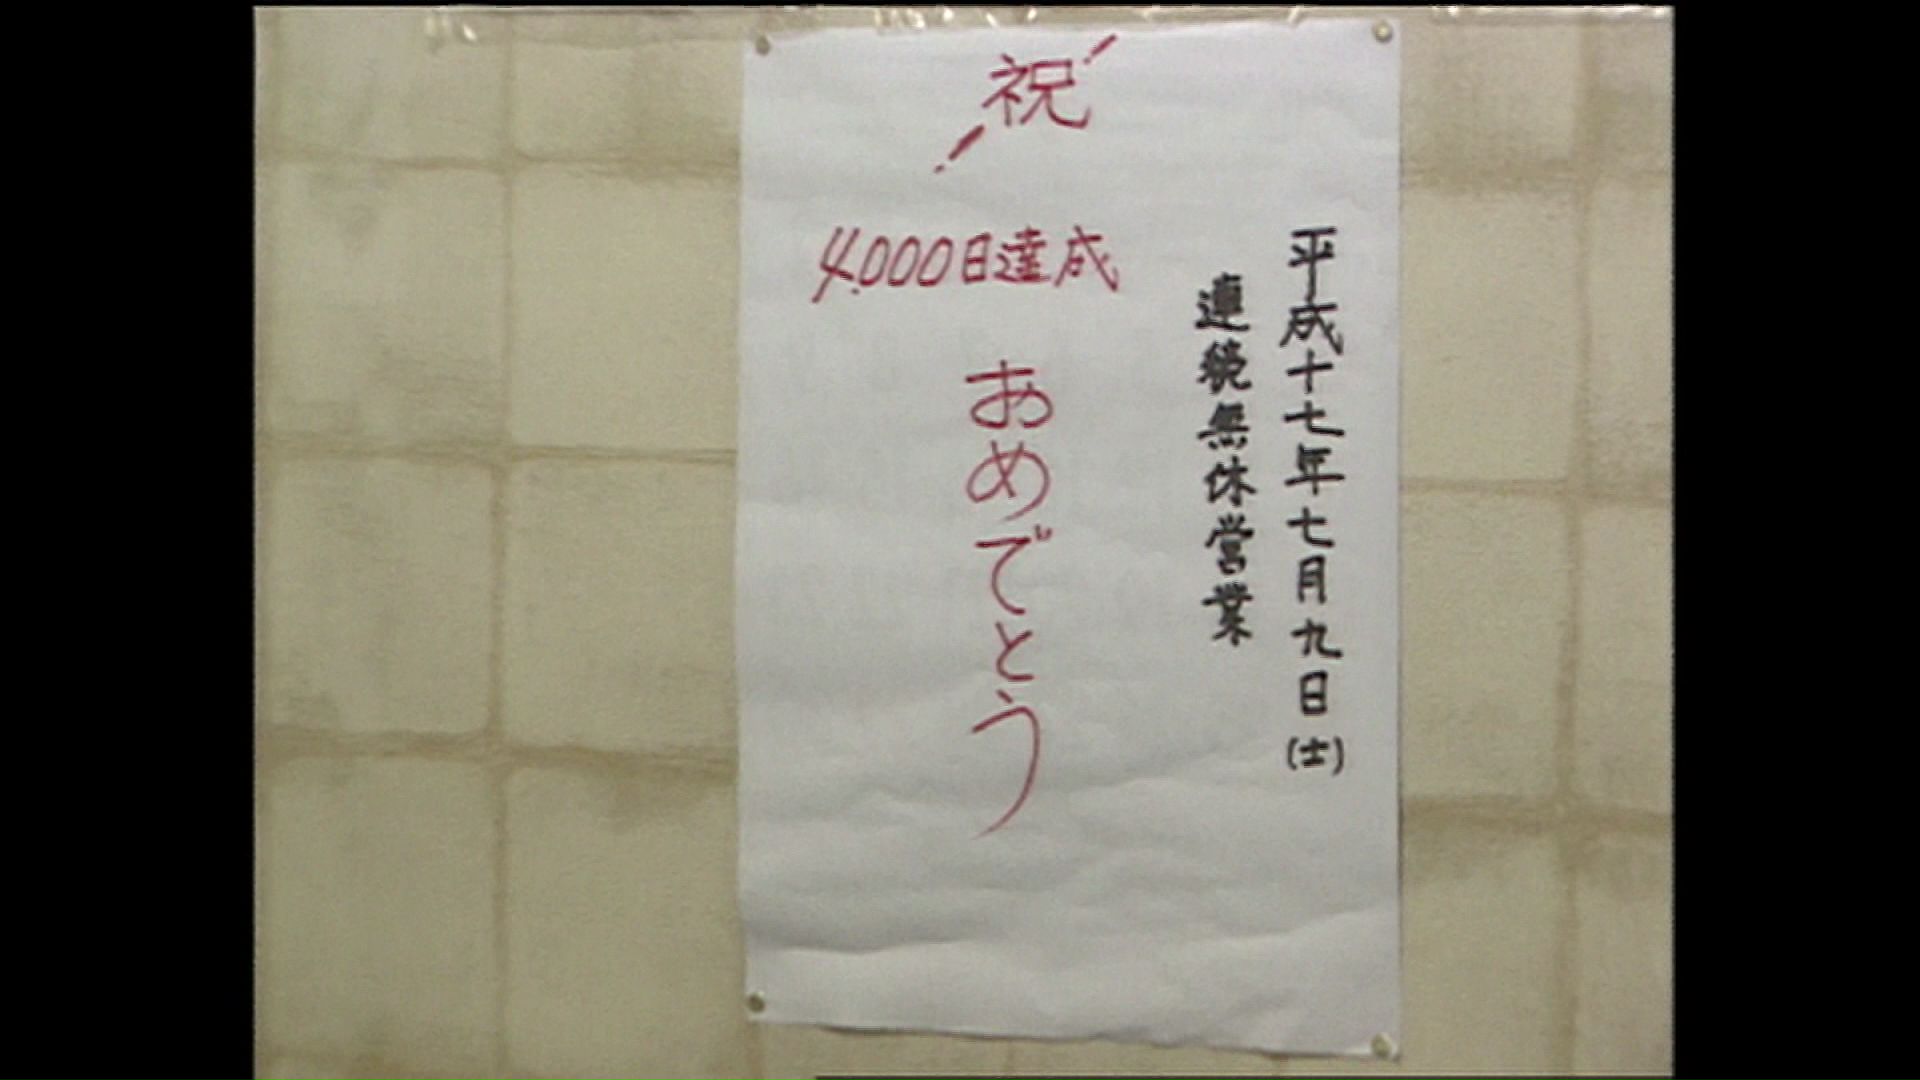 祝
平成十七年七月九日(土)
連続無休営業
4,000日達成
おめでとう